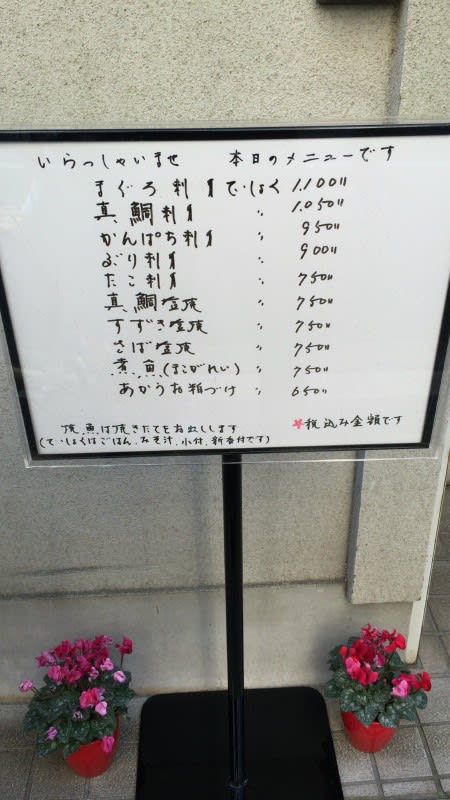 いらっしゃいませ 本日のメニューです
まぐろ刺身ていしょく 1,100〃
真鯛刺身 〃 1,050〃
かんぱち刺身 〃 950〃
ぶり刺身 〃 900〃
たこ刺身 〃 750〃
真鯛塩焼 〃 750〃
すずき塩焼 〃 750〃
さば塩焼 〃 750〃
煮魚(まこがれい) 〃 750〃
あかうお粕づけ 〃 650〃
焼魚は焼きたてをお出しします
(ていしょくはごはん、みそ汁、小付、新香付です)
税込み金額です